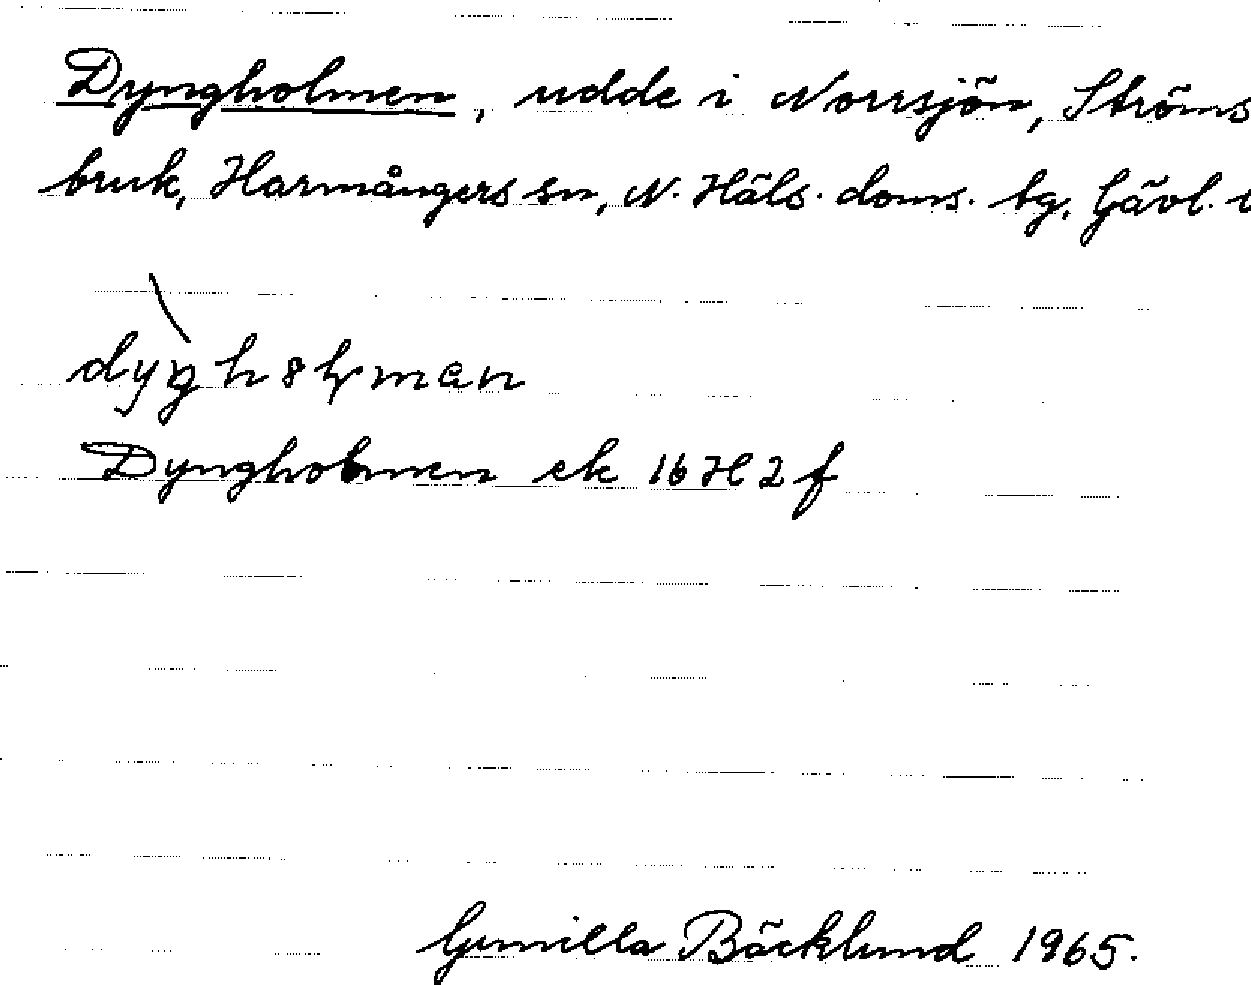 Dyngholmen, udde i Norrsjön, Ströms
bruk, Harmångers sn, N. Häls. doms. tg, Gävl.
Dyngholmen ek 16 H 2 f
Gunilla Bäcklund 1965.